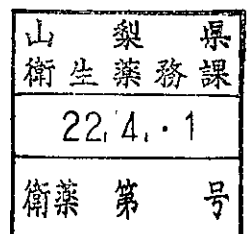 山梨県
衛生薬務課
22.4.·1
衛薬第号